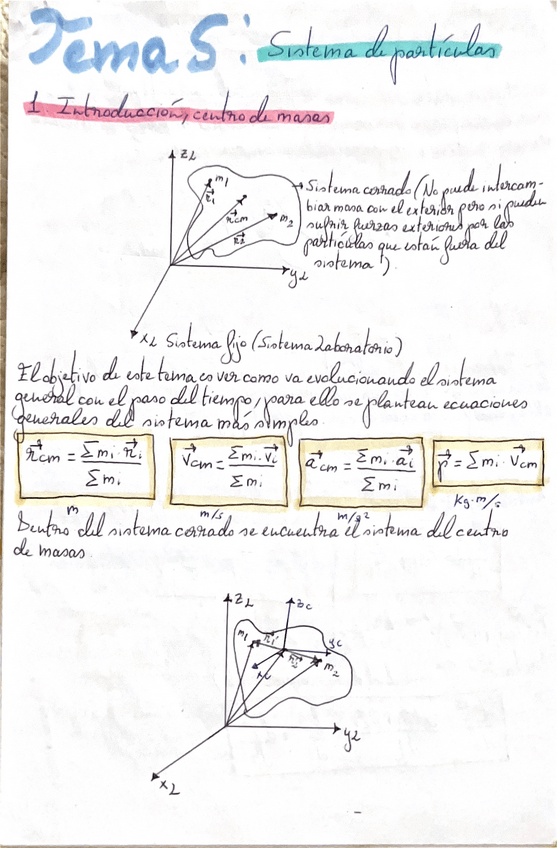 Tema 5: Sistema de partículas
1. Introducción, centro de masas
z_L
m₁
r⃗₁
r⃗cm
m₂
r⃗₂
y_L
x_L
→ Sistema cerrado (No puede intercam-
biar masa con el exterior pero si pueden
sufrir fuerzas exteriores por las
partículas que están fuera del
sistema).
Sistema fijo (Sistema Laboratorio)
El objetivo de este tema es ver como va evolucionando el sistema
general con el paso del tiempo, para ello se plantean ecuaciones
generales del sistema más simples.
r⃗cm = Σmi·r⃗i / Σmi
v⃗cm = Σmi·v⃗i / Σmi
a⃗cm = Σmi·a⃗i / Σmi
p⃗ = Σmi·v⃗cm
m
m/s
m/s²
kg·m/s
Dentro del sistema cerrado se encuentra el sistema del centro
de masas.
z_L
z_c
m₁
r⃗₁'
y_c
r⃗₂'
m₂
x_c
y_L
x_L